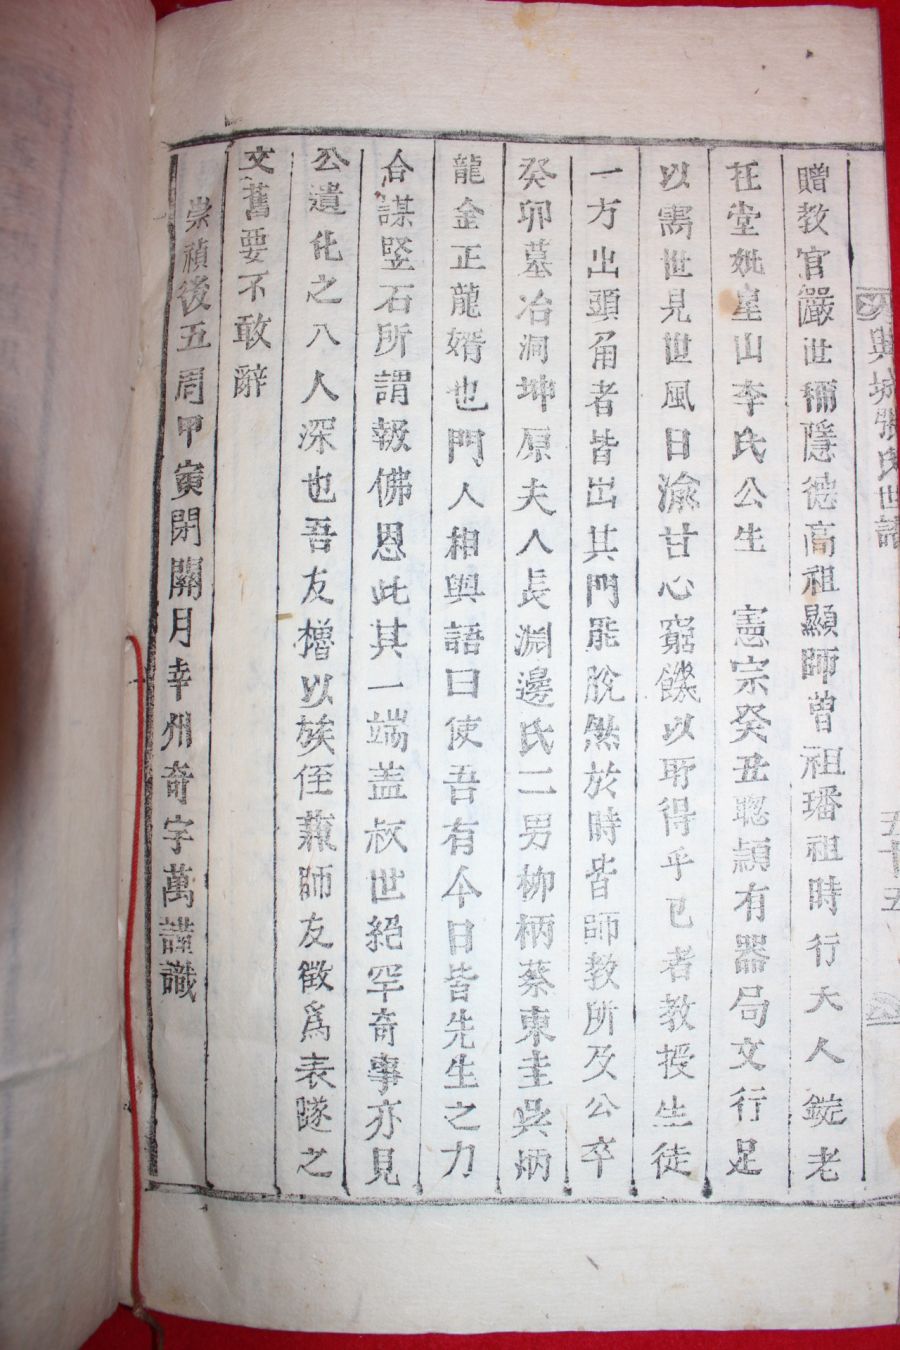 興城張氏世譜
五十五
贈教官嚴世稱隱德高祖顯師曾祖璠祖時行大人錠老
在堂妣皇山李氏公生 憲宗癸丑聰頴有器局文行足
以需世見世風日渝甘心窮餓以所得乎己者教授生徒
一方出頭角者皆出其門能脫然於時皆師教所及公卒
癸卯墓冶洞坤原夫人長淵邊氏二男柳柄蔡東圭吳炳
龍金正龍婿也門人相與語曰使吾有今日皆先生之力
合謀竪石所謂報佛恩此其一端盖叔世絕罕奇事亦見
公遺化之入人深也吾友橧以族侄兼師友徵爲表隧之
文舊要不敢辭
崇禎後五周甲寅閉關月幸州奇宇萬謹識